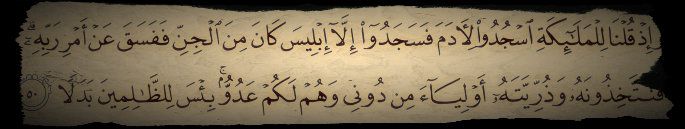 وَإِذْ قُلْنَا لِلْمَلَٰٓئِكَةِ ٱسْجُدُوا۟ لِءَادَمَ فَسَجَدُوٓا۟ إِلَّآ إِبْلِيسَ كَانَ مِنَ ٱلْجِنِّ فَفَسَقَ عَنْ أَمْرِ رَبِّهِۦٓ ۗ
أَفَتَتَّخِذُونَهُۥ وَذُرِّيَّتَهُۥٓ أَوْلِيَآءَ مِن دُونِى وَهُمْ لَكُمْ عَدُوٌّۢ ۚ بِئْسَ لِلظَّٰلِمِينَ بَدَلًا ٥٠